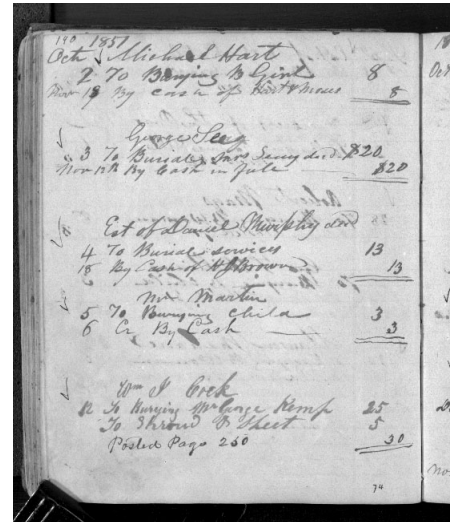 190 1851
Oct Michael Hart
2 To Burying B Girl 8
Nov 18 By Cash of Hart & 8
George Seeg
3 To Burial dcd $20
Nov 12th By Cash in full $20
Est of Daniel Murphy dcd
4 To Burial services 13
18 By Cash of Brown 13
Mr Martin
5 To Burying Child 3
6 Cr By Cash 3
Wm J Cock
12 To Burying Mr George Kemp 25
To Shroud & Sheet 5
Posted Page 250 30
74